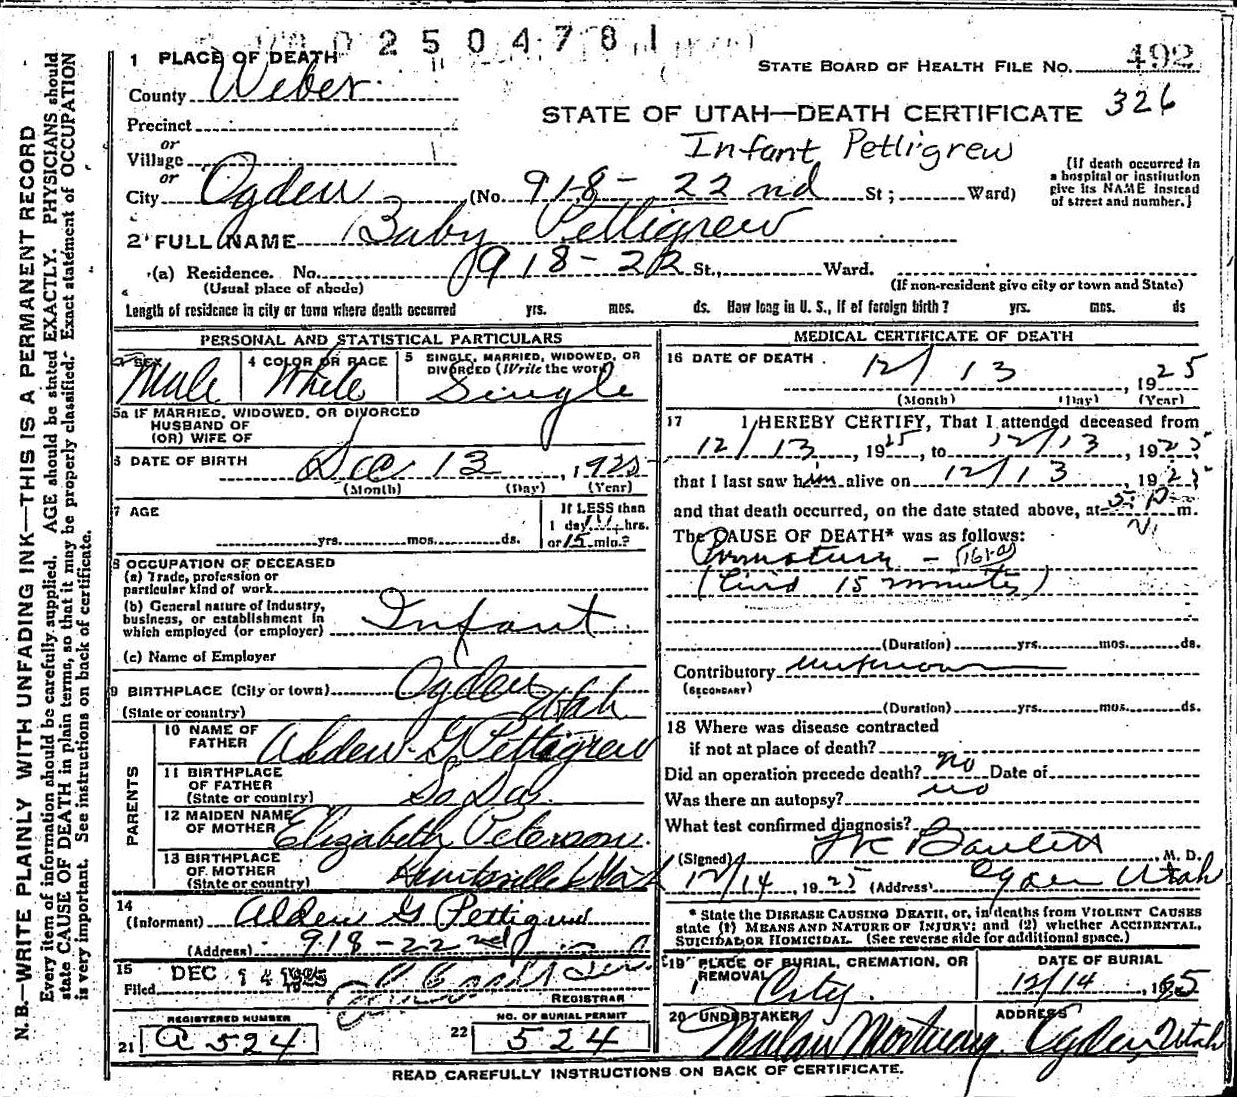 0 2 5 0 4 7 8 1
STATE BOARD OF HEALTH FILE NO. 492
STATE OF UTAH—DEATH CERTIFICATE 326
Infant Pettigrew
1 PLACE OF DEATH
County Weber
Precinct
or
Village
or
City Ogden (No. 918 - 22nd St; Ward)
(If death occurred in
a hospital or institution
give its NAME instead
of street and number.)
2 FULL NAME Baby Pettigrew
(a) Residence. No. 918-22 St., Ward.
(Usual place of abode) (If non-resident give city or town and State)
Length of residence in city or town where death occurred yrs. mos. ds. How long in U. S., if of foreign birth? yrs. mos. ds
PERSONAL AND STATISTICAL PARTICULARS
3 SEX Male
4 COLOR OR RACE White
5 SINGLE, MARRIED, WIDOWED, OR
DIVORCED (Write the word)
Single
5a IF MARRIED, WIDOWED, OR DIVORCED
HUSBAND OF
(OR) WIFE OF
6 DATE OF BIRTH Dec 13, 1925
(Month) (Day) (Year)
7 AGE yrs. mos. ds.
If LESS than
1 day, hrs.
or 15 min.?
8 OCCUPATION OF DECEASED
(a) Trade, profession or
particular kind of work
(b) General nature of industry,
business, or establishment in
which employed (or employer) Infant
(c) Name of Employer
9 BIRTHPLACE (City or town) Ogden
(State or country) Utah
PARENTS
10 NAME OF
FATHER Alden G Pettigrew
11 BIRTHPLACE
OF FATHER
(State or country) So Dak
12 MAIDEN NAME
OF MOTHER Elizabeth Peterson
13 BIRTHPLACE
OF MOTHER
(State or country) Huntsville Utah
14
(Informant) Alden G Pettigrew
(Address) 918-22nd
15
Filed DEC 14 1925
REGISTRAR
REGISTERED NUMBER
21 a 524
NO. OF BURIAL PERMIT
22 524
MEDICAL CERTIFICATE OF DEATH
16 DATE OF DEATH 12/13, 1925
(Month) (Day) (Year)
17 I HEREBY CERTIFY, That I attended deceased from
12/13, 1925, to 12/13, 1925
that I last saw him alive on 12/13, 1925
and that death occurred, on the date stated above, at 5 P m.
The CAUSE OF DEATH* was as follows:
(Lived 15 minutes)
(Duration) yrs. mos. ds.
Contributory unknown
(SECONDARY)
(Duration) yrs. mos. ds.
18 Where was disease contracted
if not at place of death?
Did an operation precede death? no Date of
Was there an autopsy? no
What test confirmed diagnosis?
(Signed) M. D.
12/14, 1925 (Address) Ogden Utah
* State the DISEASE CAUSING DEATH, or, in deaths from VIOLENT CAUSES
state (1) MEANS AND NATURE OF INJURY; and (2) whether ACCIDENTAL,
SUICIDAL OR HOMICIDAL. (See reverse side for additional space.)
19 PLACE OF BURIAL, CREMATION, OR
REMOVAL City
DATE OF BURIAL
12/14, 1925
20 UNDERTAKER Malan Mortuary
ADDRESS Ogden, Utah
READ CAREFULLY INSTRUCTIONS ON BACK OF CERTIFICATE.
N. B.—WRITE PLAINLY WITH UNFADING INK—THIS IS A PERMANENT RECORD
Every item of information should be carefully supplied. AGE should be stated EXACTLY. PHYSICIANS should
state CAUSE OF DEATH in plain terms, so that it may be properly classified. Exact statement of OCCUPATION
is very important. See instructions on back of certificate.